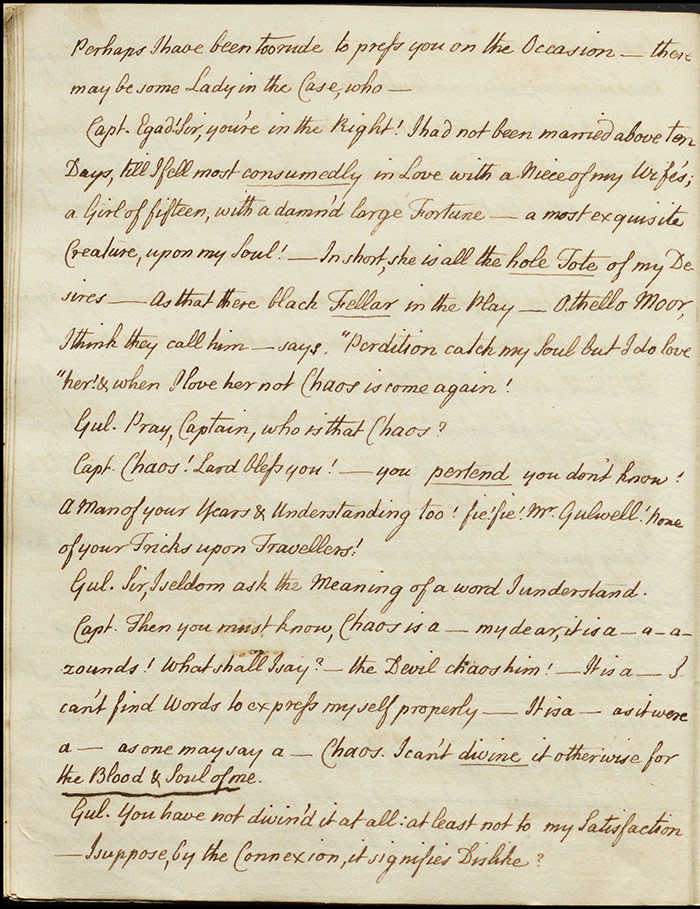 Perhaps I have been too rude to press you on the Occasion — there
may be some Lady in the Case, who —
Capt. Egad! Sir, you're in the Right! I had not been married above ten
Days, till I fell most consumedly in Love with a Niece of my Wife's;
a Girl of fifteen, with a damn'd large Fortune — a most exquisite
Creature, upon my Soul! — In short, she is all the hole Tote of my De-
sires — As that there black Fellar in the Play — Othello Moor,
I think they call him — says, "Perdition catch my Soul but I do love
"her! & when I love her not Chaos is come again!
Gul. Pray, Captain, who is that Chaos?
Capt. Chaos! Lard bless you! — you pertend you don't know!
A Man of your Years & Understanding too! fie! fie! Mr. Gulwell! none
of your Tricks upon Travellers!
Gul. Sir, I seldom ask the Meaning of a word I understand.
Capt. Then you must know, Chaos is a — my dear, it is a — a — a —
zounds! What shall I say? — the Devil chaos him! — It is a — I
can't find Words to express myself properly — It is a — as it were
a — as one may say a — Chaos. I can't divine it otherwise for
the Blood & Soul of me.
Gul. You have not divin'd it at all: at least not to my Satisfaction
— I suppose, by the Connexion, it signifies Dislike?